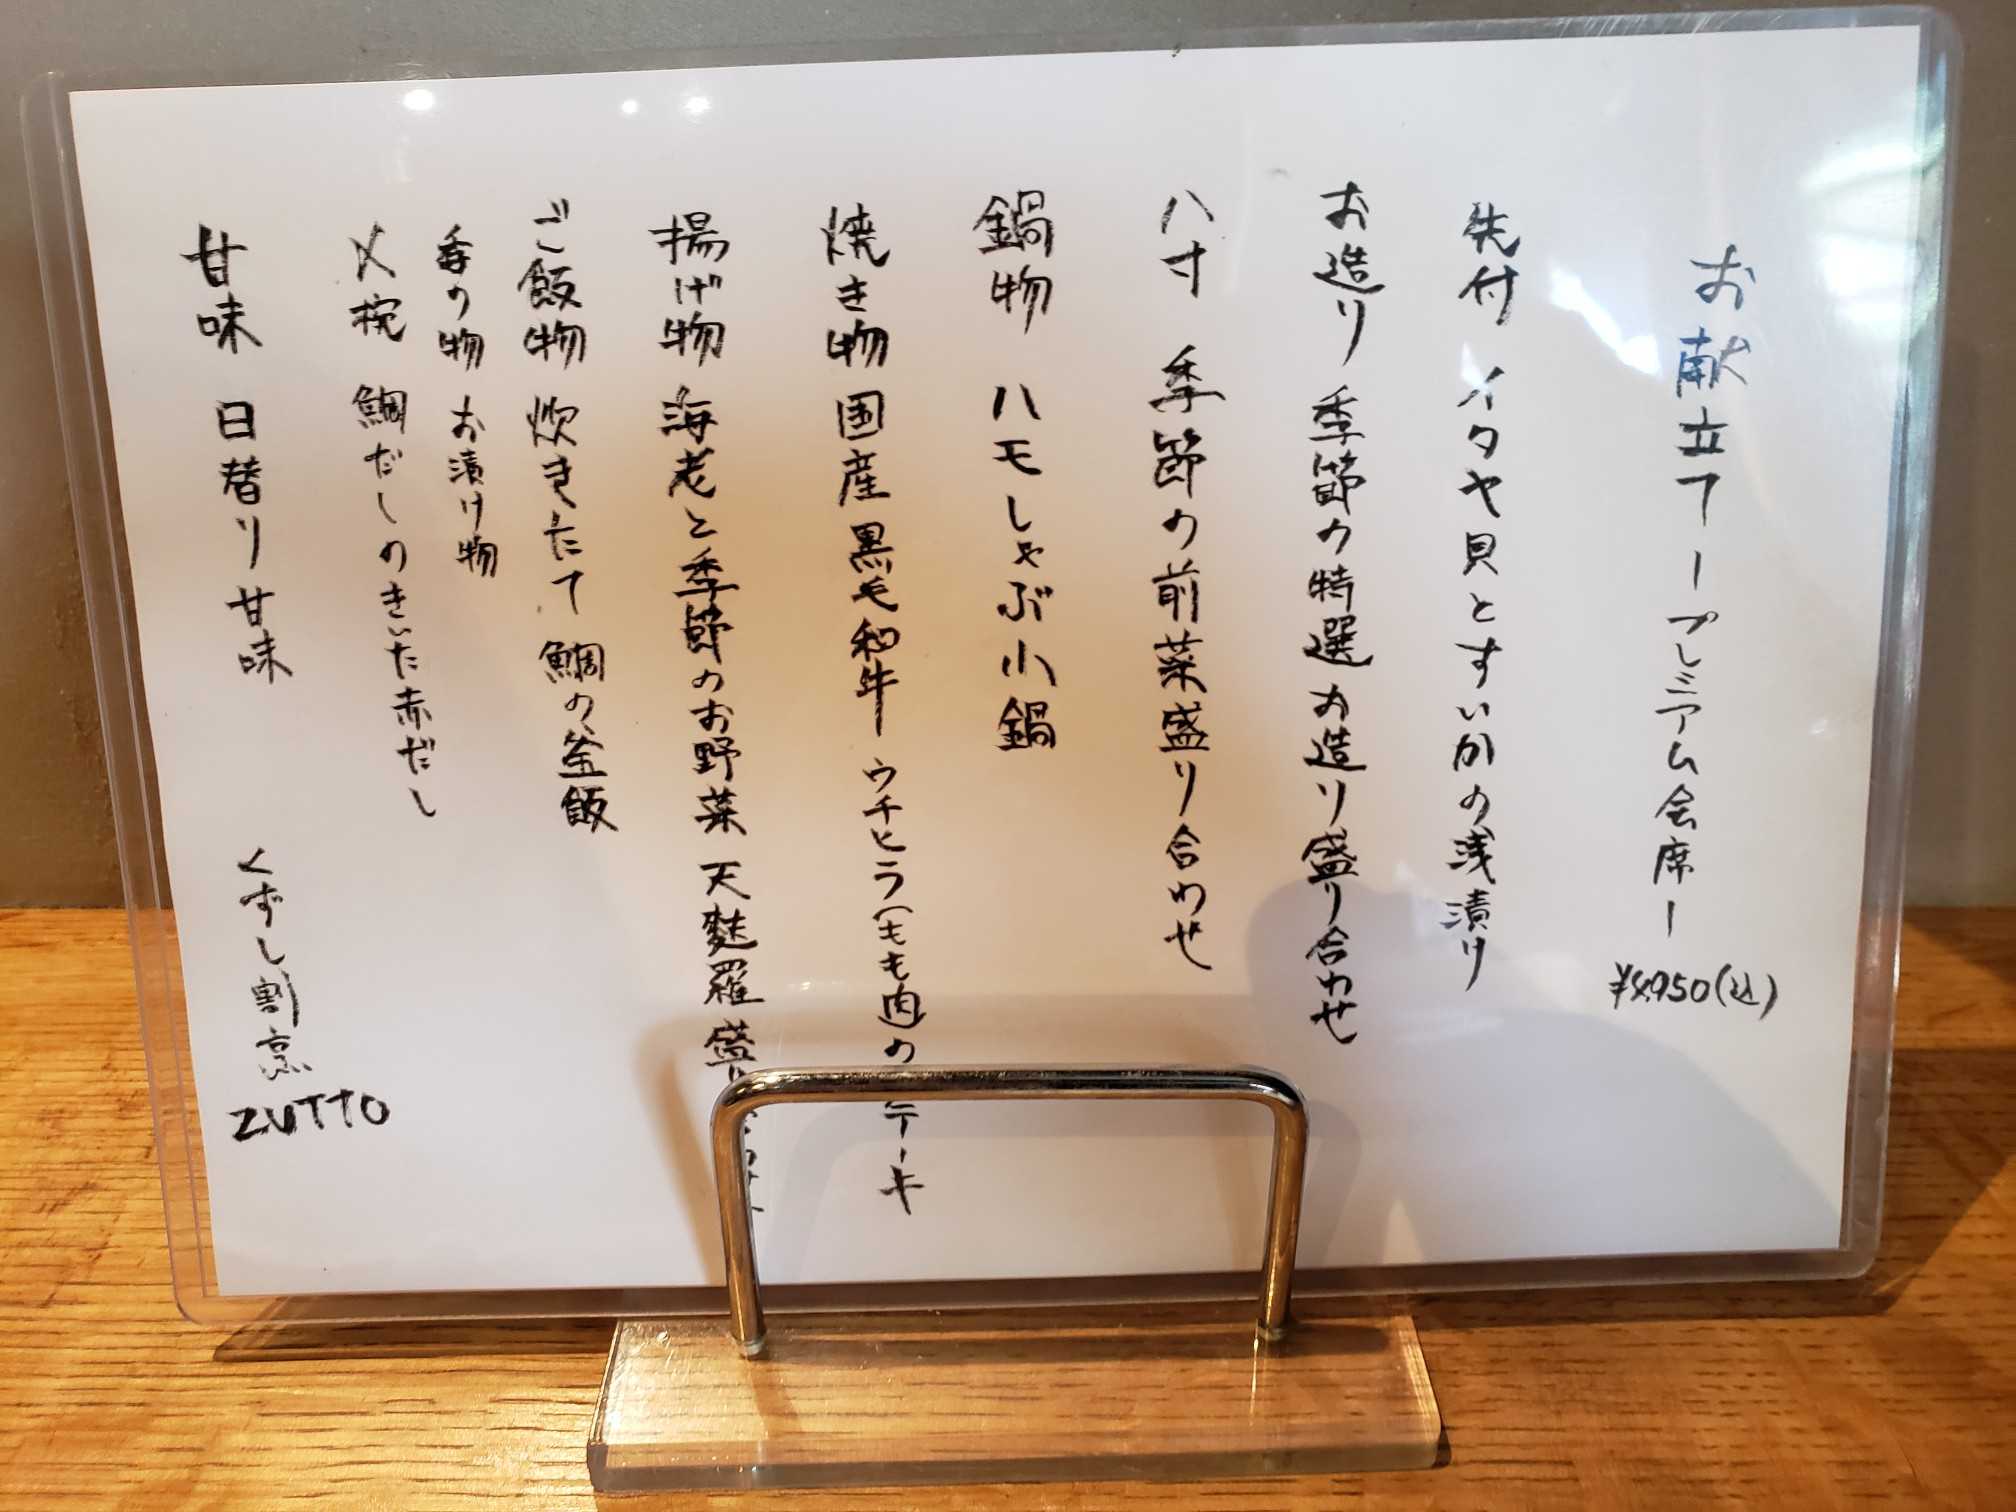 お献立てープレミアム会席ー
¥4,950(込)
先付 イタヤ貝とすいかの浅漬け
お造り 季節の特選お造り盛り合わせ
八寸 季節の前菜盛り合わせ
鍋物 ハモしゃぶ小鍋
焼き物 国産黒毛和牛 ウチヒラ(もも肉の テーキ
揚げ物 海老と季節のお野菜 天麩羅 盛り
ご飯物 炊きたて 鯛の釜飯
香の物 お漬け物
〆椀 鯛だしのきいた赤だし
甘味 日替り甘味
くずし割烹
ZUTTO